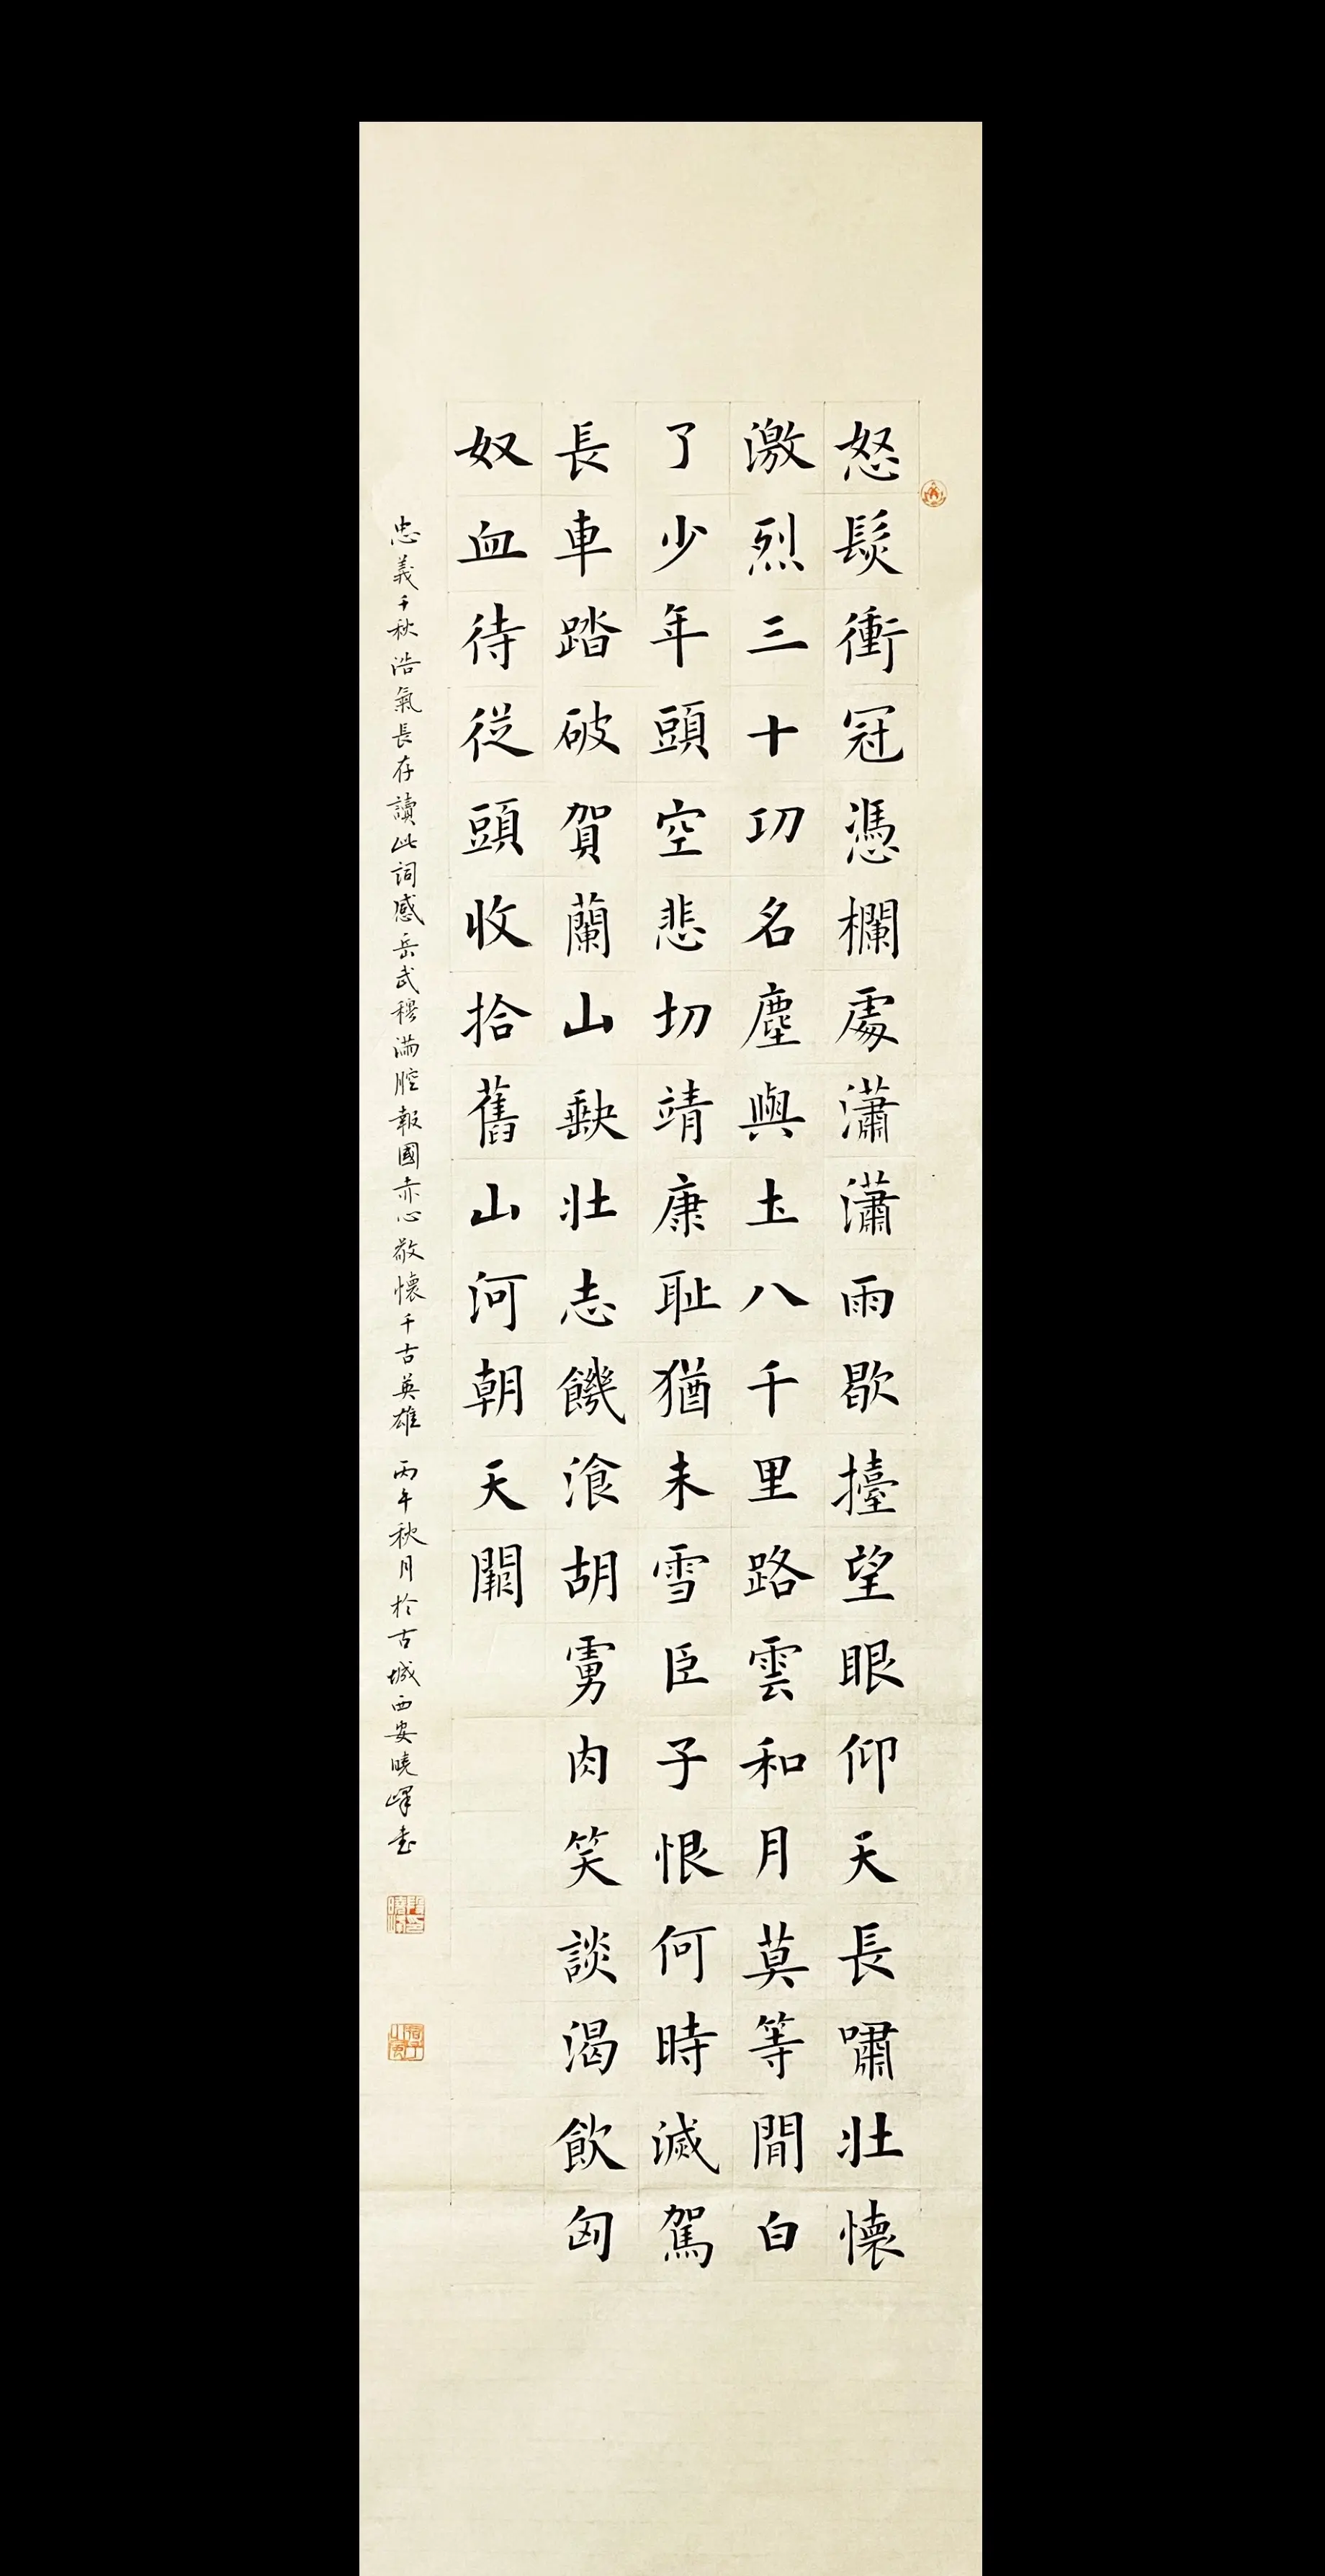 怒髮衝冠憑欄處瀟瀟雨歇擡望眼仰天長嘯壯懷
激烈三十功名塵與土八千里路雲和月莫等閒白
了少年頭空悲切靖康恥猶未雪臣子恨何時滅駕
長車踏破賀蘭山缺壯志饑飡胡虜肉笑談渴飲匈
奴血待從頭收拾舊山河朝天闕
忠義千秋浩氣長存讀此詞感岳武穆滿腔報國赤心敬懷千古英雄 丙午秋月於古城西安曉嶧書